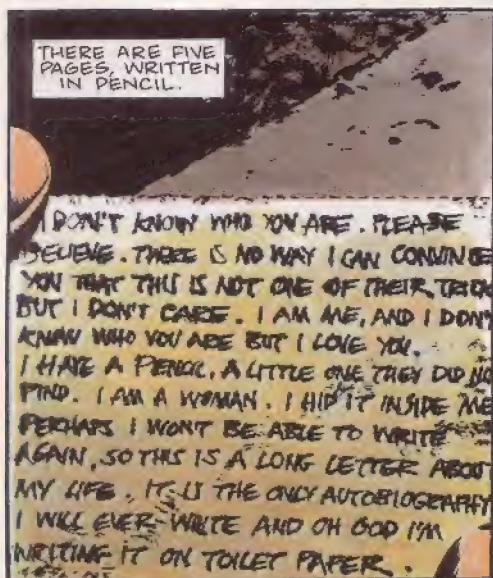 THERE ARE FIVE
PAGES, WRITTEN
IN PENCIL.
I DON'T KNOW WHO YOU ARE. PLEASE
BELIEVE. THERE IS NO WAY I CAN CONVINCE
YOU THAT THIS IS NOT ONE OF THEIR TRICKS
BUT I DON'T CARE. I AM ME, AND I DON'T
KNOW WHO YOU ARE BUT I LOVE YOU.
I HAVE A PENCIL, A LITTLE ONE THEY DID NO
FIND. I AM A WOMAN. I HID IT INSIDE ME
PERHAPS I WON'T BE ABLE TO WRITE
AGAIN, SO THIS IS A LONG LETTER ABOUT
MY LIFE. IT IS THE ONLY AUTOBIOGRAPHY
I WILL EVER WRITE AND OH GOD I'M
WRITING IT ON TOILET PAPER.